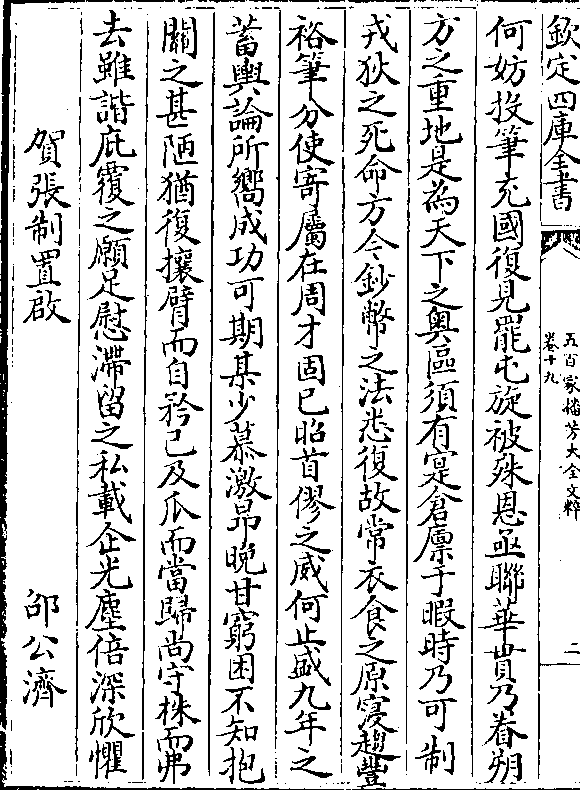 欽定四庫全書
五百家播芳大全文粹
卷十九
二
何妨投筆充國復見罷屯旋被殊恩亟聯華貫乃眷朔
方之重地是為天下之奥區須有寔倉廪于暇時乃可制
戎狄之死命方今鈔幣之法悉復故常衣食之原寖趨豐
裕筆分使寄屬在周才固已昭首僇之威何止盛九年之
蓄輿論所嚮成功可期某少慕激昻晩甘窮困不知抱
關之甚陋猶復攘臂而自矜已及瓜而當歸尚守株而弗
去雖諧庇覆之願足慰滯留之私載企光塵倍深欣懼
賀張制置啟
邵公濟